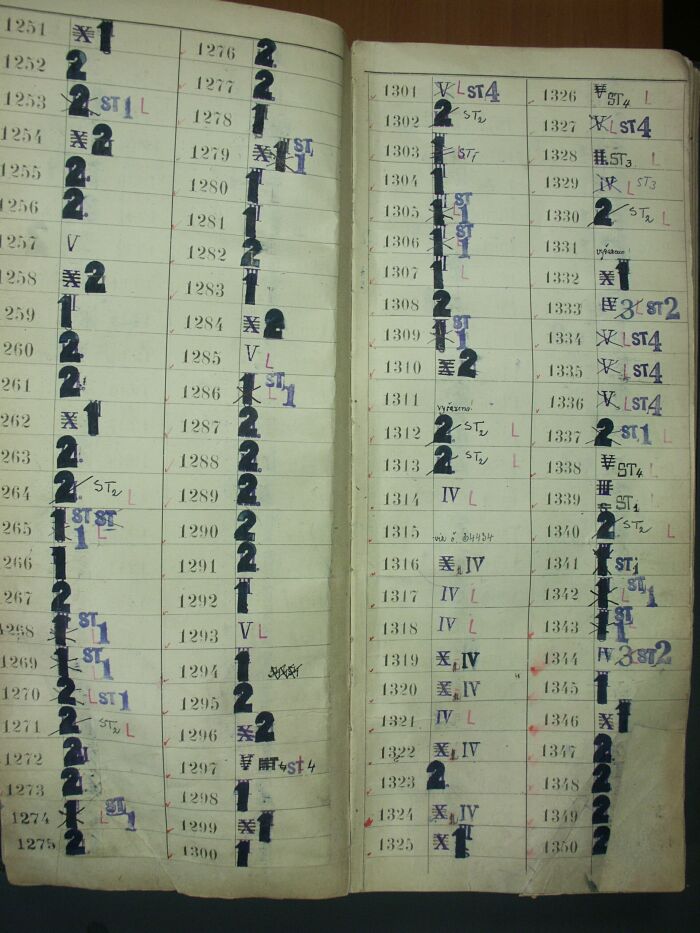 1251 X 1
1252 2
1253 2 ST 1 L
1254 X 2
1255 2
1256 2
1257 V
1258 X 2
259 1
260 2
261 2
262 X 1
263 2
264 2 ST2 L
265 1 ST 1 ST L
266 1
267 2
1268 1 ST 1 L
1269 1 ST 1 L
1270 2 L ST 1
1271 2 ST2 L
1272 2
1273 2
1274 1 L ST 1
1275 2
1276 2
1277 2
1278 1
1279 X 1 ST 1
1280 1
1281 1
1282 2
1283 1
1284 X 2
1285 V L
1286 1 L ST 1
1287 2
1288 2
1289 2
1290 2
1291 2
1292 1
1293 V L
1294 1
1295 2
1296 X 2
1297 ST 4
1298 1
1299 X 1
1300 1
1301 V L ST 4
1302 2 ST2
1303 1 ST1
1304 1
1305 1 L ST 1
1306 1 L ST 1
1307 1 L
1308 2
1309 1 ST 1
1310 X 2
1311 vyřazeno
1312 2 ST2 L
1313 2 ST2 L
1314 IV L
1315 viz č.
1316 X IV
1317 IV L
1318 IV L
1319 X IV
1320 X IV
1321 IV L
1322 X IV
1323 2
1324 X IV
1325 X 1
1326 V ST4 L
1327 V L ST 4
1328 II. ST3 L
1329 IV L ST3
1330 2 ST2 L
1331 vyřazeno
1332 X 1
1333 IV 3 L ST 2
1334 V L ST 4
1335 V L ST 4
1336 V L ST 4
1337 2 ST 1 L
1338 V ST4 L
1339 III ST1 L
1340 2 ST2 L
1341 1 ST1
1342 1 L ST 1
1343 1 L ST 1
1344 IV 3 L ST 2
1345 1
1346 X 1
1347 2
1348 2
1349 2
1350 2